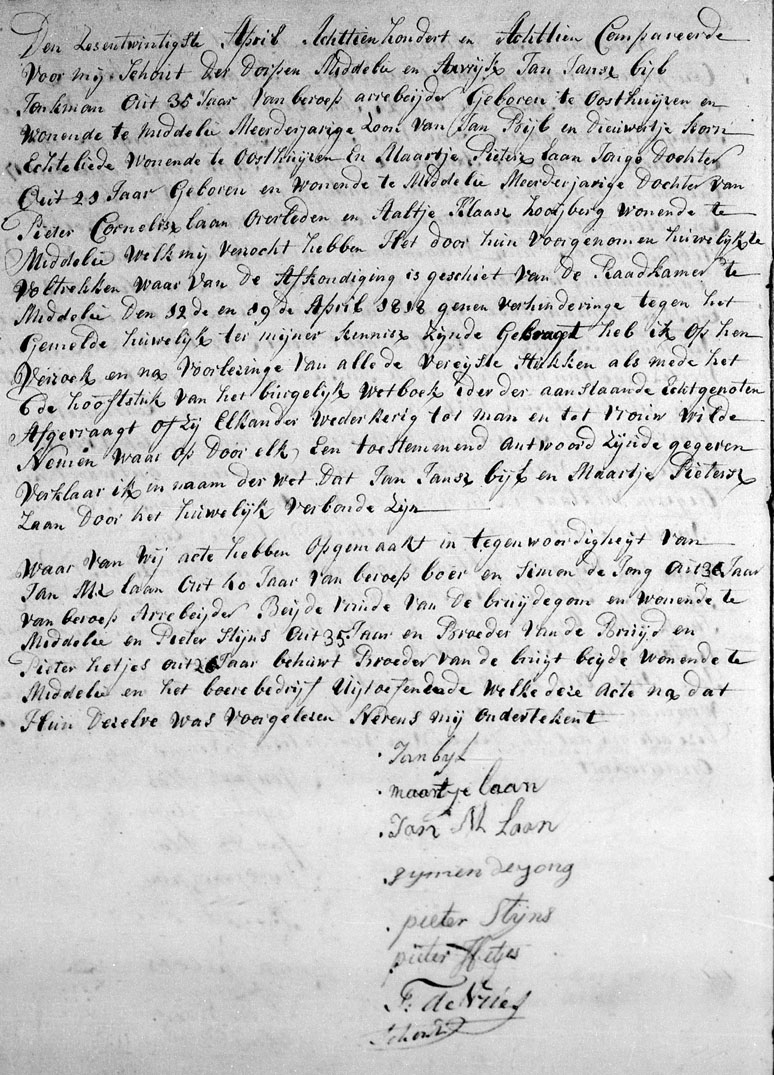 Den Sesentwintigste April Achttienhondert en Achttien Compareerde
Voor mij Schout Der Dorpen Middelie en Axwijk Jan Jansz bijl
Jonkman Out 35 Jaar Van beroep arrebeijder Geboren te Oosthuijzen en
Wonende te Middelie Meerderjarige Zoon van Jan Bijl en Dieuwertje Korn
Echteliede Wonende te Oosthuijzen En Maartje Pieters Laan Jonge Dochter
Out 29 Jaar Geboren en wonende te Middelie Meerderjarige Dochter van
Pieter Cornelisz Laan Overleden en Aaltje Klaasz Hooijberg Wonende te
Middelie Welk mij Versocht hebben Het door hun Voorgenomen huiwelijk te
Voltrekken waar van De Afkondiging is geschiet van De Raadkamer te
Middelie Den 12 de en 19 de April 1818 genen verhinderinge tegen het
Gemelde huiwelijk ter mijner kennisse Zijnde Gebragt heb ik Op hen
Verzoek en na Voorlezinge van alle de Vereijste Stukken als mede het
6de hooftstuk van het burgelijk Wetboek ider der aanstaande Echtgenoten
Afgevraagt of Zij Elkander Wederkerig tot man en tot vrouw Wilde
Nemen waar op Door elk Een toestemmend antwoord Zijnde gegeven
Verklaar ik in naam der wet Dat Jan Jansz bijl en Maartje Pietersz
Laan Door het huiwelijk Verbonde Zijn
Waar van Wij acte hebben Opgemaakt in tegenwoordigheijt van
Jan Mz Laan Out 40 Jaar van beroep boer en Simon de Jong Out 36 Jaar
van beroep Arrebeijder Beijde vriende van De bruijdegom en wonende te
Middelie en Pieter Stijns Out 35 Jaar en Broeder van de Bruijd en
Pieter hetjes out 26 Jaar behuwt Broeder van de bruijt beijde wonende te
Middelie en het boere bedrijf Uijtoefenende Welke deze acte na dat
Hun Dezelve was Voorgelezen Nevens mij Ondertekent
Jan byl
maartje laan
Jan M Laan
symen de jong
pieter Stijns
pieter Hetjes
F: de Vries
Schout